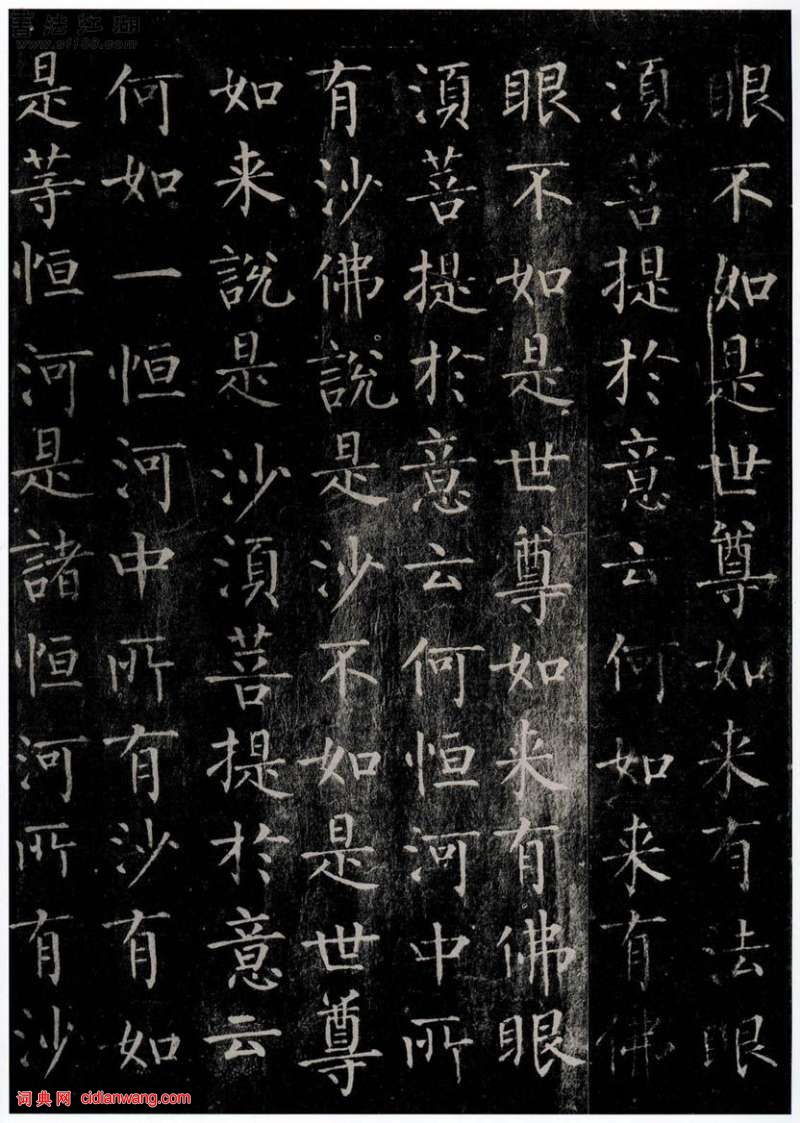 眼不如是世尊如来有法眼
湏菩提於意云何如来有佛
眼不如是世尊如来有佛眼
湏菩提於意云何恒河中所
有沙佛說是沙不如是世尊
如来說是沙湏菩提於意云
何如一恒河中所有沙有如
是等恒河是諸恒河所有沙
书法江湖
www.sf108.com
词典网 cidianwang.com